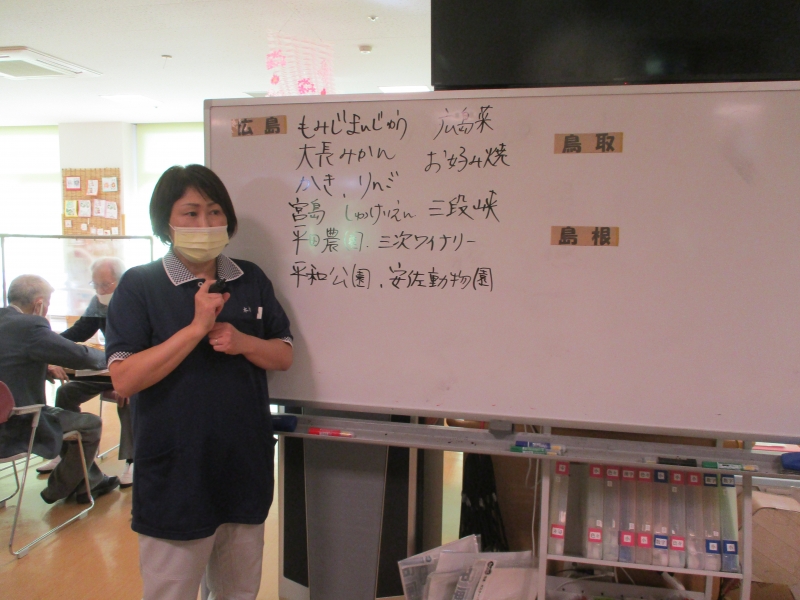 広島
もみじまんじゅう 広島菜
大長みかん お好み焼
かき、りんご
宮島 しゅけいえん 三段峡
平田農園、三次ワイナリー
平和公園、安佐動物園
鳥取
島根